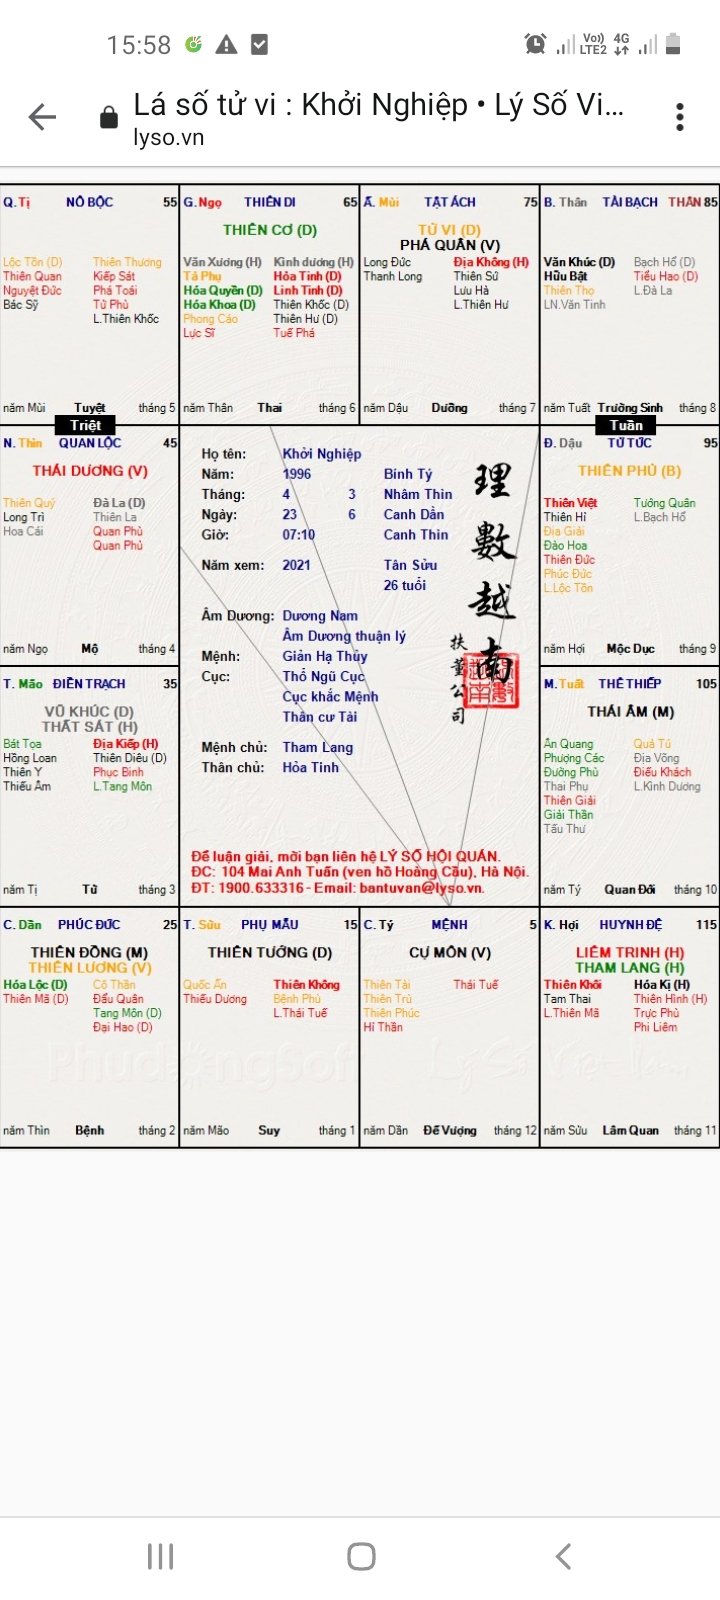 15:58
Vo)) 4G
LTE2
Lá số tử vi : Khởi Nghiệp • Lý Số Vi...
lyso.vn
Q. Tị NÔ BỘC 55
Lộc Tồn (D) Thiên Thương
Thiên Quan Kiếp Sát
Nguyệt Đức Phá Toái
Bác Sỹ Tử Phù
L.Thiên Khốc
năm Mùi Tuyệt tháng 5
G. Ngọ THIÊN DI 65
THIÊN CƠ (D)
Văn Xương (H) Kình dương (H)
Tả Phụ Hỏa Tinh (D)
Hóa Quyền (D) Linh Tinh (D)
Hóa Khoa (D) Thiên Khốc (D)
Phong Cáo Thiên Hư (D)
Lực Sĩ Tuế Phá
năm Thân Thai tháng 6
Ấ. Mùi TẬT ÁCH 75
TỬ VI (D)
PHÁ QUÂN (V)
Long Đức Địa Không (H)
Thanh Long Thiên Sứ
Lưu Hà
L.Thiên Hư
năm Dậu Dưỡng tháng 7
B. Thân TÀI BẠCH THÂN 85
Văn Khúc (D) Bạch Hổ (D)
Hữu Bật Tiểu Hao (D)
Thiên Thọ L.Đà La
LN.Văn Tinh
năm Tuất Trường Sinh tháng 8
Triệt
Tuần
N. Thìn QUAN LỘC 45
THÁI DƯƠNG (V)
Thiên Quý Đà La (D)
Long Trì Thiên La
Hoa Cái Quan Phù
Quan Phủ
năm Ngọ Mộ tháng 4
Họ tên: Khởi Nghiệp
Năm: 1996 Bính Tý
Tháng: 4 3 Nhâm Thìn
Ngày: 23 6 Canh Dần
Giờ: 07:10 Canh Thìn
Năm xem: 2021 Tân Sửu
26 tuổi
Âm Dương: Dương Nam
Âm Dương thuận lý
Mệnh: Giản Hạ Thủy
Cục: Thổ Ngũ Cục
Cục khắc Mệnh
Thân cư Tài
Mệnh chủ: Tham Lang
Thân chủ: Hỏa Tinh
理數越南
扶董公司
Để luận giải, mời bạn liên hệ LÝ SỐ HỘI QUÁN.
ĐC: 104 Mai Anh Tuấn (ven hồ Hoàng Cầu), Hà Nội.
ĐT: 1900.633316 - Email: bantuvan@lyso.vn.
Đ. Dậu TỬ TỨC 95
THIÊN PHỦ (B)
Thiên Việt Tướng Quân
Thiên Hỉ L.Bạch Hổ
Địa Giải
Đào Hoa
Thiên Đức
Phúc Đức
L.Lộc Tồn
năm Hợi Mộc Dục tháng 9
T. Mão ĐIỀN TRẠCH 35
VŨ KHÚC (D)
THẤT SÁT (H)
Bát Tọa Địa Kiếp (H)
Hồng Loan Thiên Diêu (D)
Thiên Y Phục Binh
Thiếu Âm L.Tang Môn
năm Tị Tử tháng 3
M. Tuất THÊ THIẾP 105
THÁI ÂM (M)
Ân Quang Quả Tú
Phượng Các Địa Võng
Đường Phù Điếu Khách
Thai Phụ L.Kình Dương
Thiên Giải
Giải Thần
Tấu Thư
năm Tý Quan Đới tháng 10
C. Dần PHÚC ĐỨC 25
THIÊN ĐỒNG (M)
THIÊN LƯƠNG (V)
Hóa Lộc (D) Cô Thần
Thiên Mã (D) Đẩu Quân
Tang Môn (D)
Đại Hao (D)
năm Thìn Bệnh tháng 2
T. Sửu PHỤ MẪU 15
THIÊN TƯỚNG (D)
Quốc Ấn Thiên Không
Thiếu Dương Bệnh Phù
L.Thái Tuế
năm Mão Suy tháng 1
C. Tý MỆNH 5
CỰ MÔN (V)
Thiên Tài Thái Tuế
Thiên Trù
Thiên Phúc
Hỉ Thần
năm Dần Đế Vượng tháng 12
K. Hợi HUYNH ĐỆ 115
LIÊM TRINH (H)
THAM LANG (H)
Thiên Khôi Hóa Kị (H)
Tam Thai Thiên Hình (H)
L.Thiên Mã Trực Phù
Phi Liêm
năm Sửu Lâm Quan tháng 11